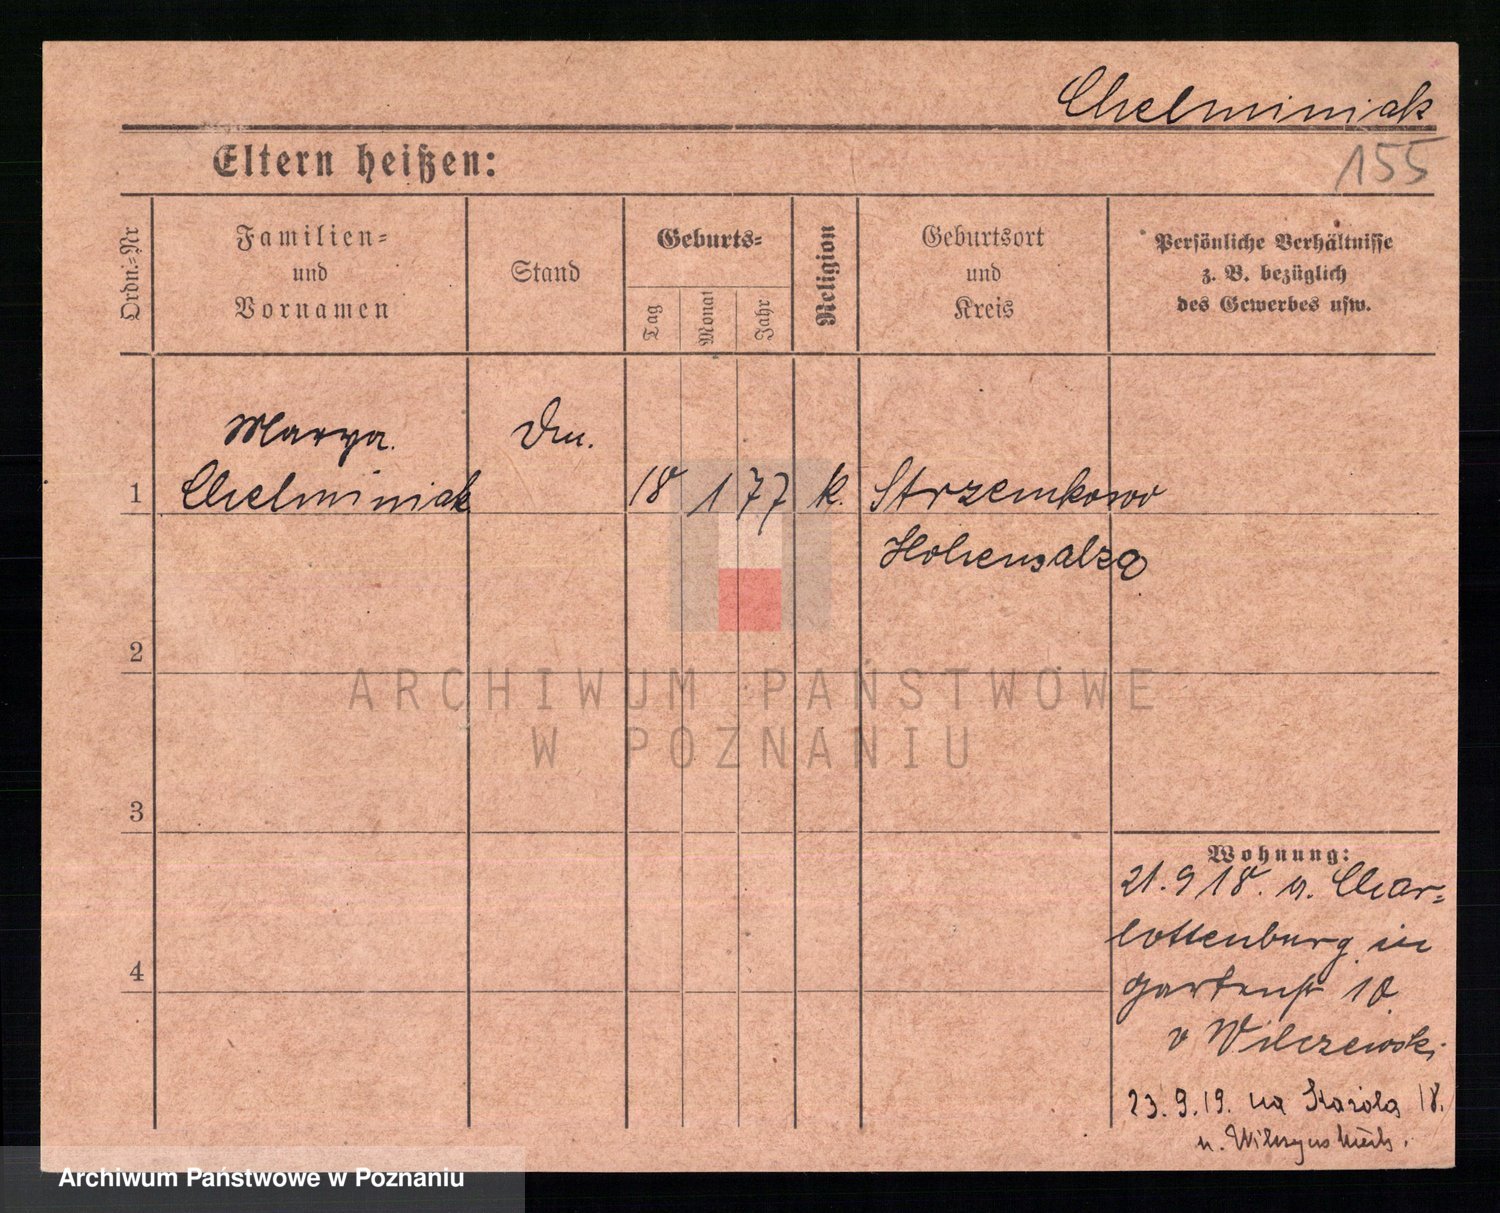 Chelminiak
155
Eltern heißen:
Ordn.-Nr
Familien-
und
Vornamen
Stand
Geburts-
Tag
Monat
Jahr
Religion
Geburtsort
und
Kreis
Persönliche Verhältnisse
z. B. bezüglich
des Gewerbes usw.
Marya.
1 Chelminiak 18 1 77 k. Strzemkowo
Hohensalza
2
ARCHIWUM PAŃSTWOWE
W POZNANIU
3
Wohnung:
21.9 18. a. Char-
lottenburg in
Gartenstr 10
v Wilczewski
4
23.9.19. na 18.
u.
Archiwum Państwowe w Poznaniu